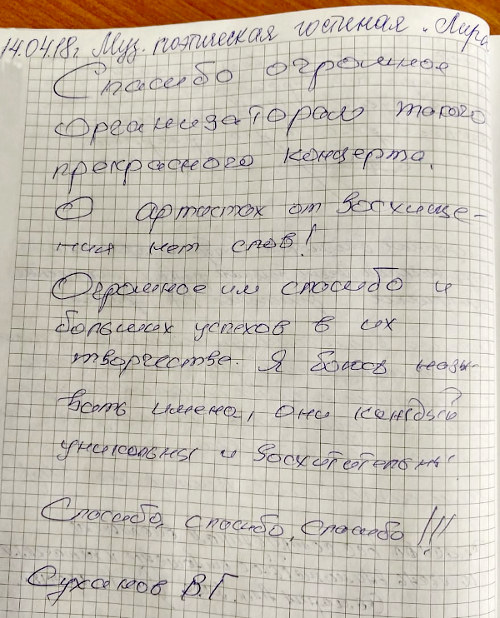 14.04.18г. Муз. поэтическая гостиная "Лира
Спасибо огромное
организаторам такого
прекрасного концерта.
О артистах от восхище-
ния нет слов!
Огромное им спасибо и
больших успехов в их
творчестве. Я боюсь назы-
вать имена, они каждый
уникальны и восхитительны.
Спасибо, спасибо, спасибо!!!
Суханов В.Г.